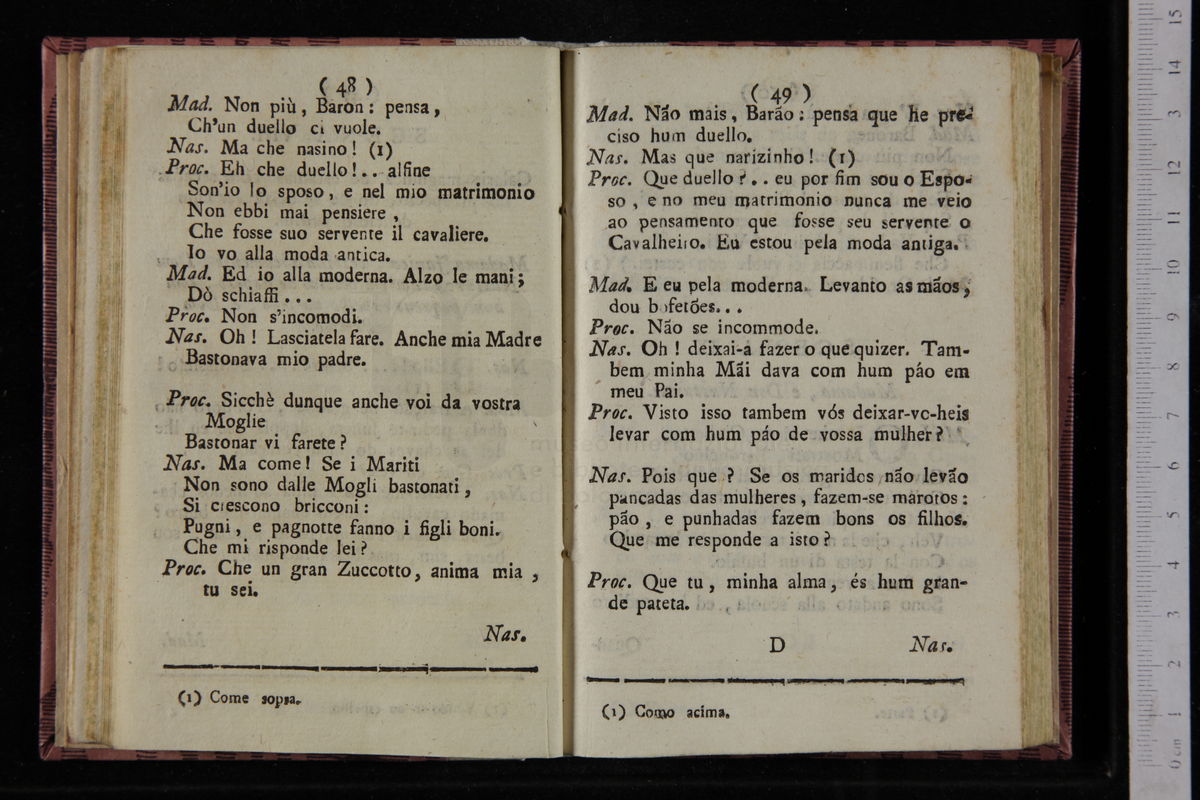 ( 48 )
Mad. Non più, Baron: pensa,
Ch'un duello ci vuole.
Nas. Ma che nasino! (1)
Proc. Eh che duello!.. alfine
Son'io lo sposo, e nel mio matrimonio
Non ebbi mai pensiere,
Che fosse suo servente il cavaliere.
Io vo alla moda antica.
Mad. Ed io alla moderna. Alzo le mani;
Dò schiaffi...
Proc. Non s'incomodi.
Nas. Oh! Lasciatela fare. Anche mia Madre
Bastonava mio padre.
Proc. Sicchè dunque anche voi da vostra
Moglie
Bastonar vi farete?
Nas. Ma come! Se i Mariti
Non sono dalle Mogli bastonati,
Si crescono bricconi:
Pugni, e pagnotte fanno i figli boni.
Che mi risponde lei?
Proc. Che un gran Zuccotto, anima mia,
tu sei.
Nas.
(1) Come sopra.
( 49 )
Mad. Não mais, Barão: pensa que he pre-
ciso hum duello.
Nas. Mas que narizinho! (1)
Proc. Que duello?.. eu por fim sou o Espo-
so, e no meu matrimonio nunca me veio
ao pensamento que fosse seu servente o
Cavalheiro. Eu estou pela moda antiga.
Mad. E eu pela moderna. Levanto as mãos,
dou bofetões...
Proc. Não se incommode.
Nas. Oh! deixai-a fazer o que quizer. Tam-
bem minha Mãi dava com hum páo em
meu Pai.
Proc. Visto isso tambem vós deixar-vo-heis
levar com hum páo de vossa mulher?
Nas. Pois que? Se os maridos não levão
pancadas das mulheres, fazem-se marotos:
pão, e punhadas fazem bons os filhos.
Que me responde a isto?
Proc. Que tu, minha alma, és hum gran-
de pateta.
D Nas.
(1) Como acima.
0 cm 1 2 3 4 5 6 7 8 9 10 11 12 13 14 15